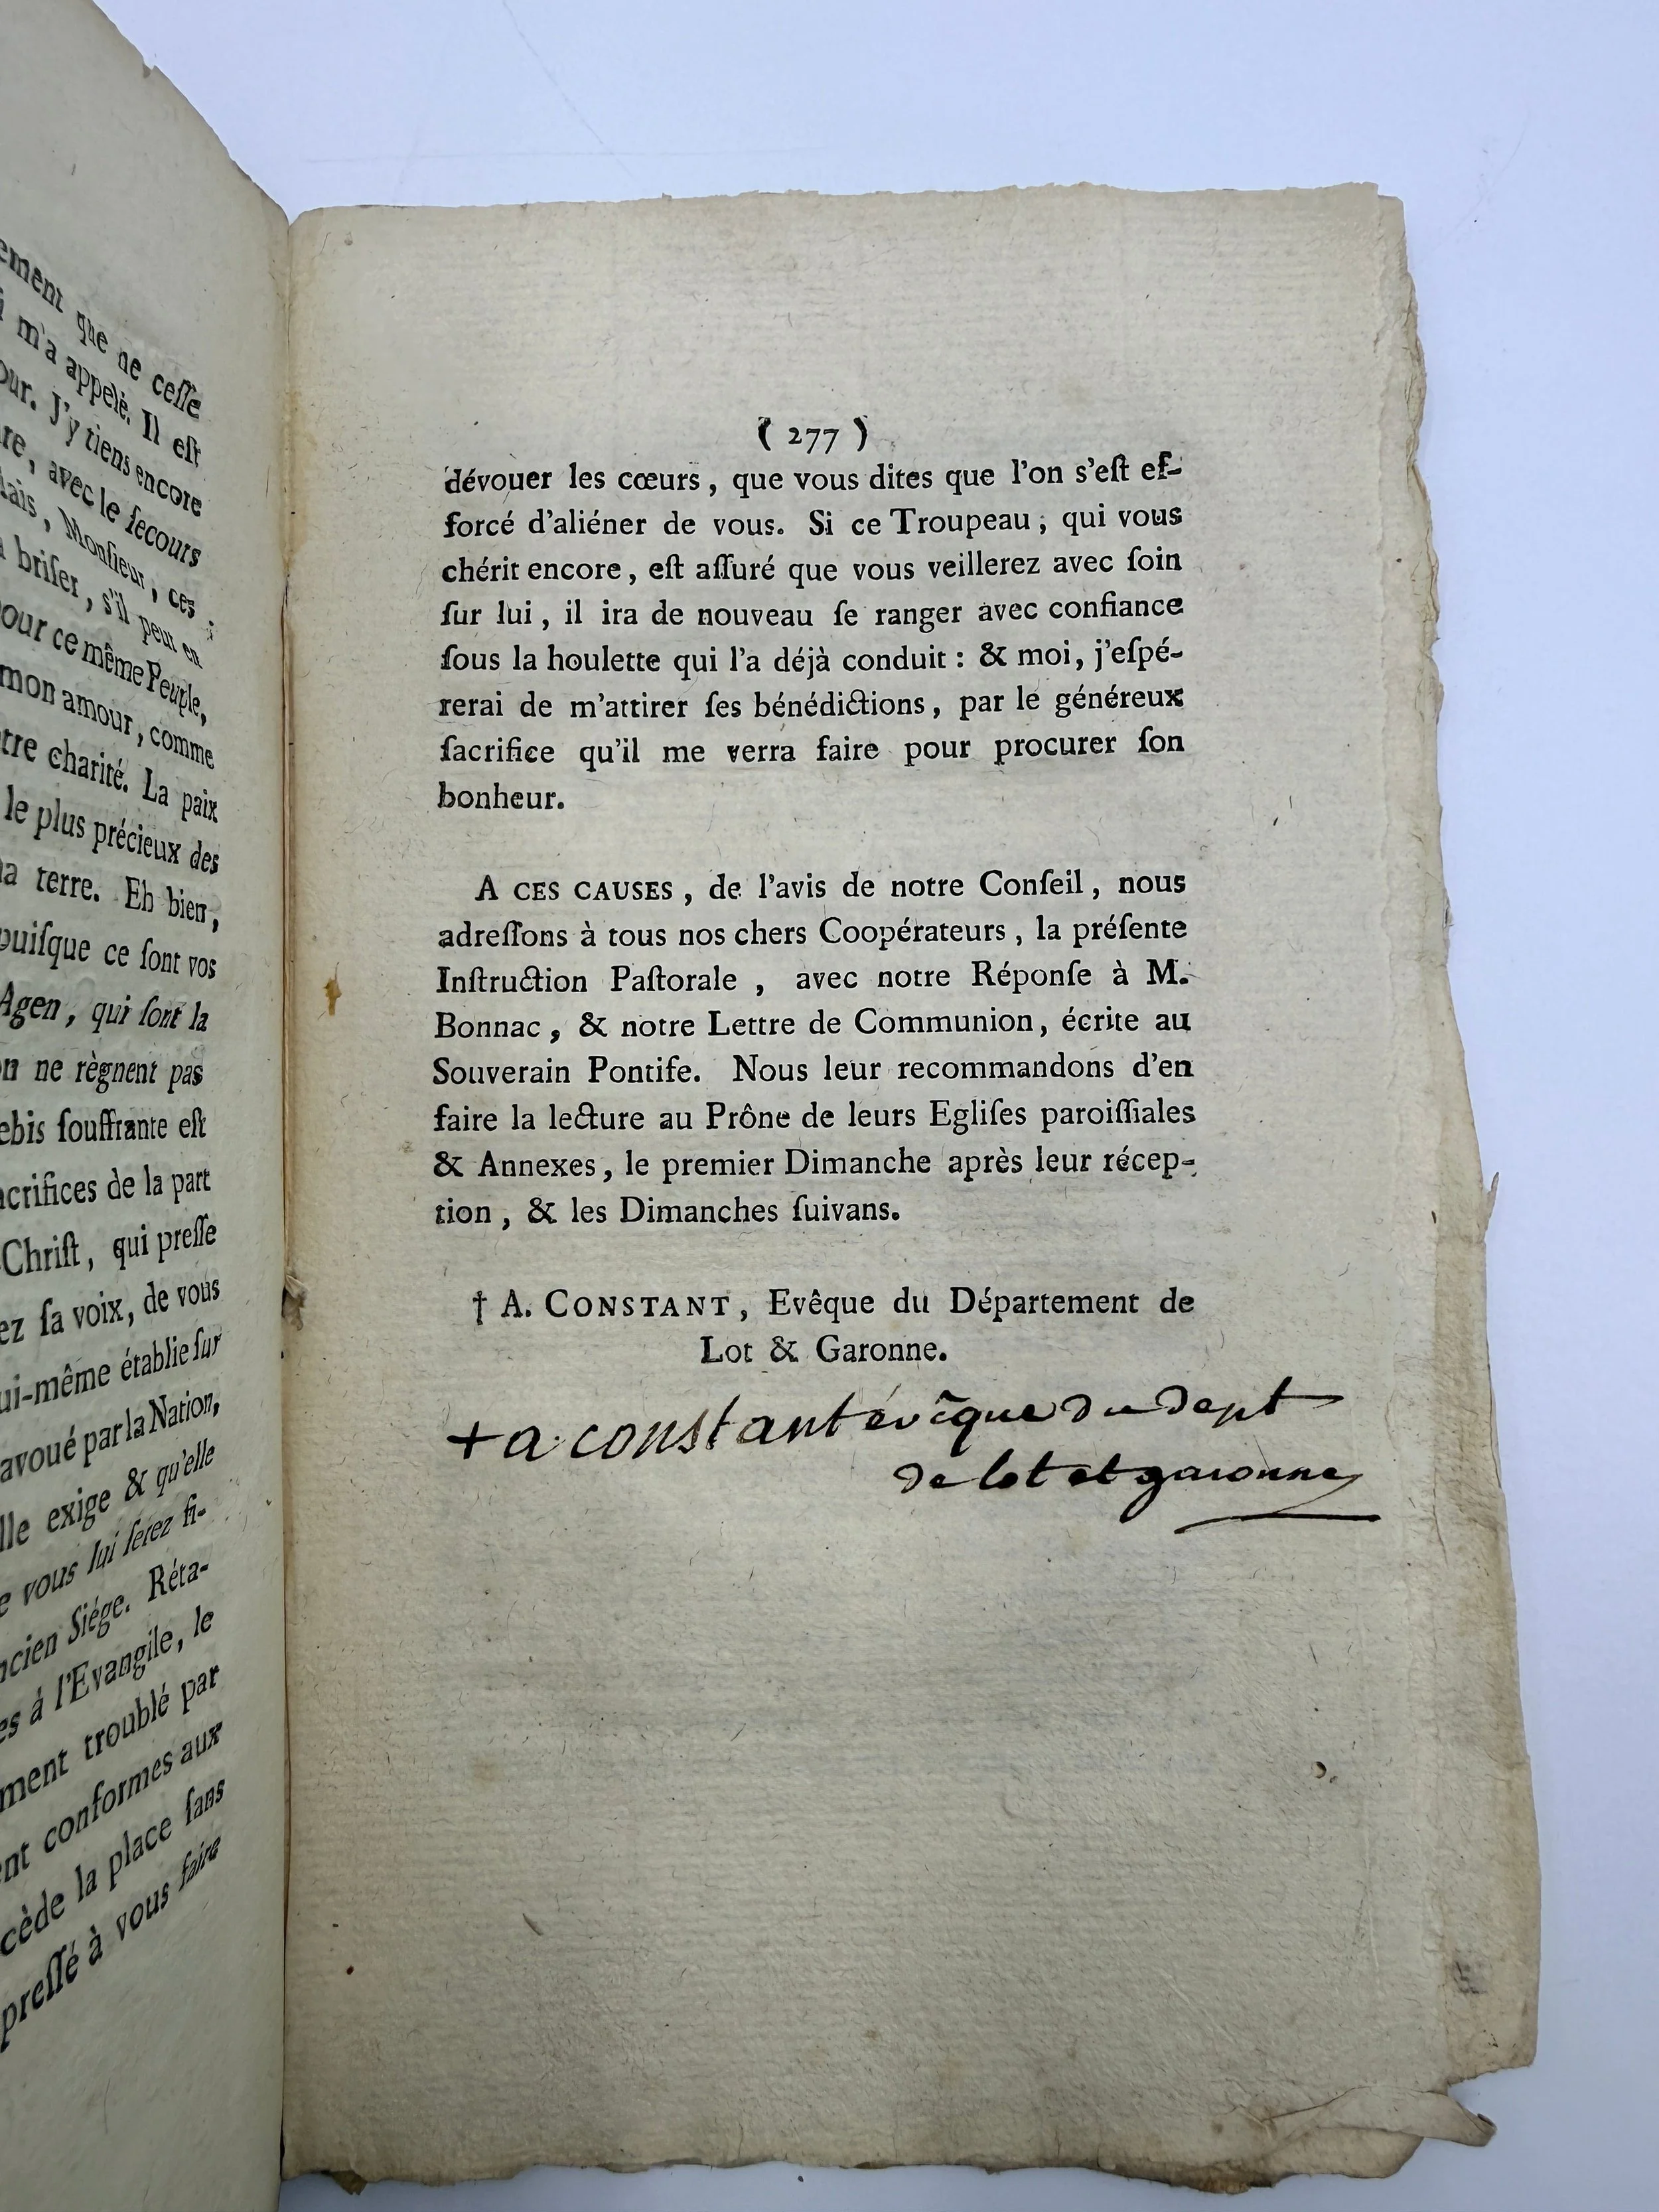 ement que ne ceſſe
m'a appelé. Il eſt
our. J'y tiens encore
re, avec le ſecours
Mais, Monſieur, ces
briſer, s'il peut en
pour ce même Peuple,
mon amour, comme
tre charité. La paix
le plus précieux des
terre. Eh bien,
puiſque ce ſont vos
Agen, qui ſont la
n ne règnent pas
ebis ſouffrante eſt
acrifices de la part
Chriſt, qui preſſe
ez ſa voix, de vous
ui-même établie ſur
avoué par la Nation,
lle exige & qu'elle
e vous lui ſerez fi-
ncien Siége. Réta-
es à l'Evangile, le
ment troublé par
nt conformes aux
cède la place ſans
preſſé à vous faire
( 277 )
dévouer les cœurs, que vous dites que l'on s'eſt ef-
forcé d'aliéner de vous. Si ce Troupeau, qui vous
chérit encore, eſt aſſuré que vous veillerez avec ſoin
ſur lui, il ira de nouveau ſe ranger avec confiance
ſous la houlette qui l'a déjà conduit : & moi, j'eſpé-
rerai de m'attirer ſes bénédictions, par le généreux
ſacrifice qu'il me verra faire pour procurer ſon
bonheur.
A CES CAUSES, de l'avis de notre Conſeil, nous
adreſſons à tous nos chers Coopérateurs, la préſente
Inſtruction Paſtorale, avec notre Réponſe à M.
Bonnac, & notre Lettre de Communion, écrite au
Souverain Pontife. Nous leur recommandons d'en
faire la lecture au Prône de leurs Egliſes paroiſſiales
& Annexes, le premier Dimanche après leur récep-
tion, & les Dimanches ſuivans.
† A. CONSTANT, Evêque du Département de
Lot & Garonne.
+ a. constant évêque du dept
de lot et garonne